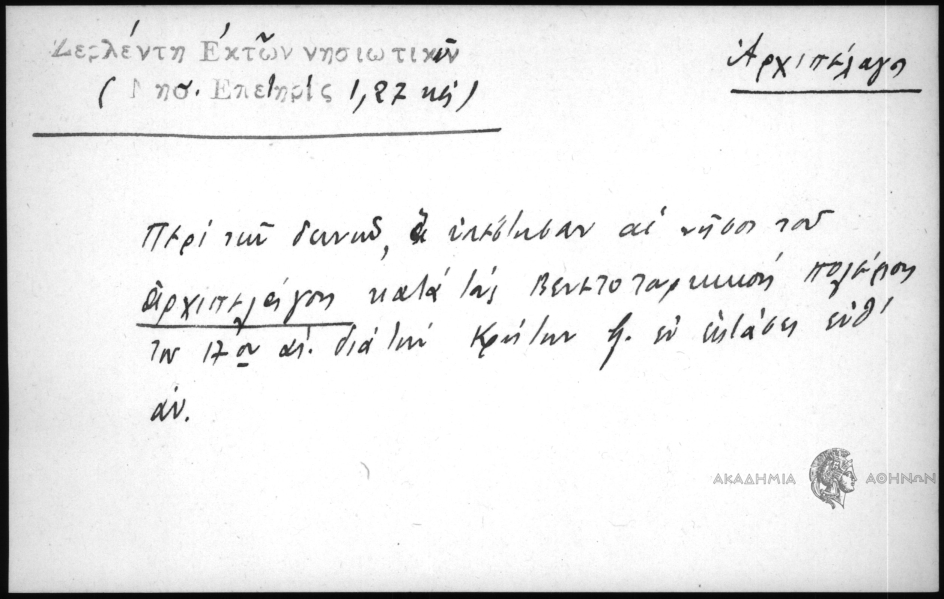 Ζερλέντη Ἐκτῶν νησιωτικῶν
(Νησ. Ἐπετηρίς 1, 27 κἑ)
Ἀρχιπέλαγο
Περὶ τῶν δεινῶν, ἃ ὑπέστησαν αἱ νῆσοι τοῦ
ἀρχιπελάγους κατὰ τοὺς Βενετοταρκικοὺς πολέμους
τοῦ 17ου αἰ. διὰ τὴν Κρήτην βλ. ἐν ἐκτάσει ἔνθ'
ἀν.
ΑΚΑΔΗΜΙΑ ΑΘΗΝΩΝ